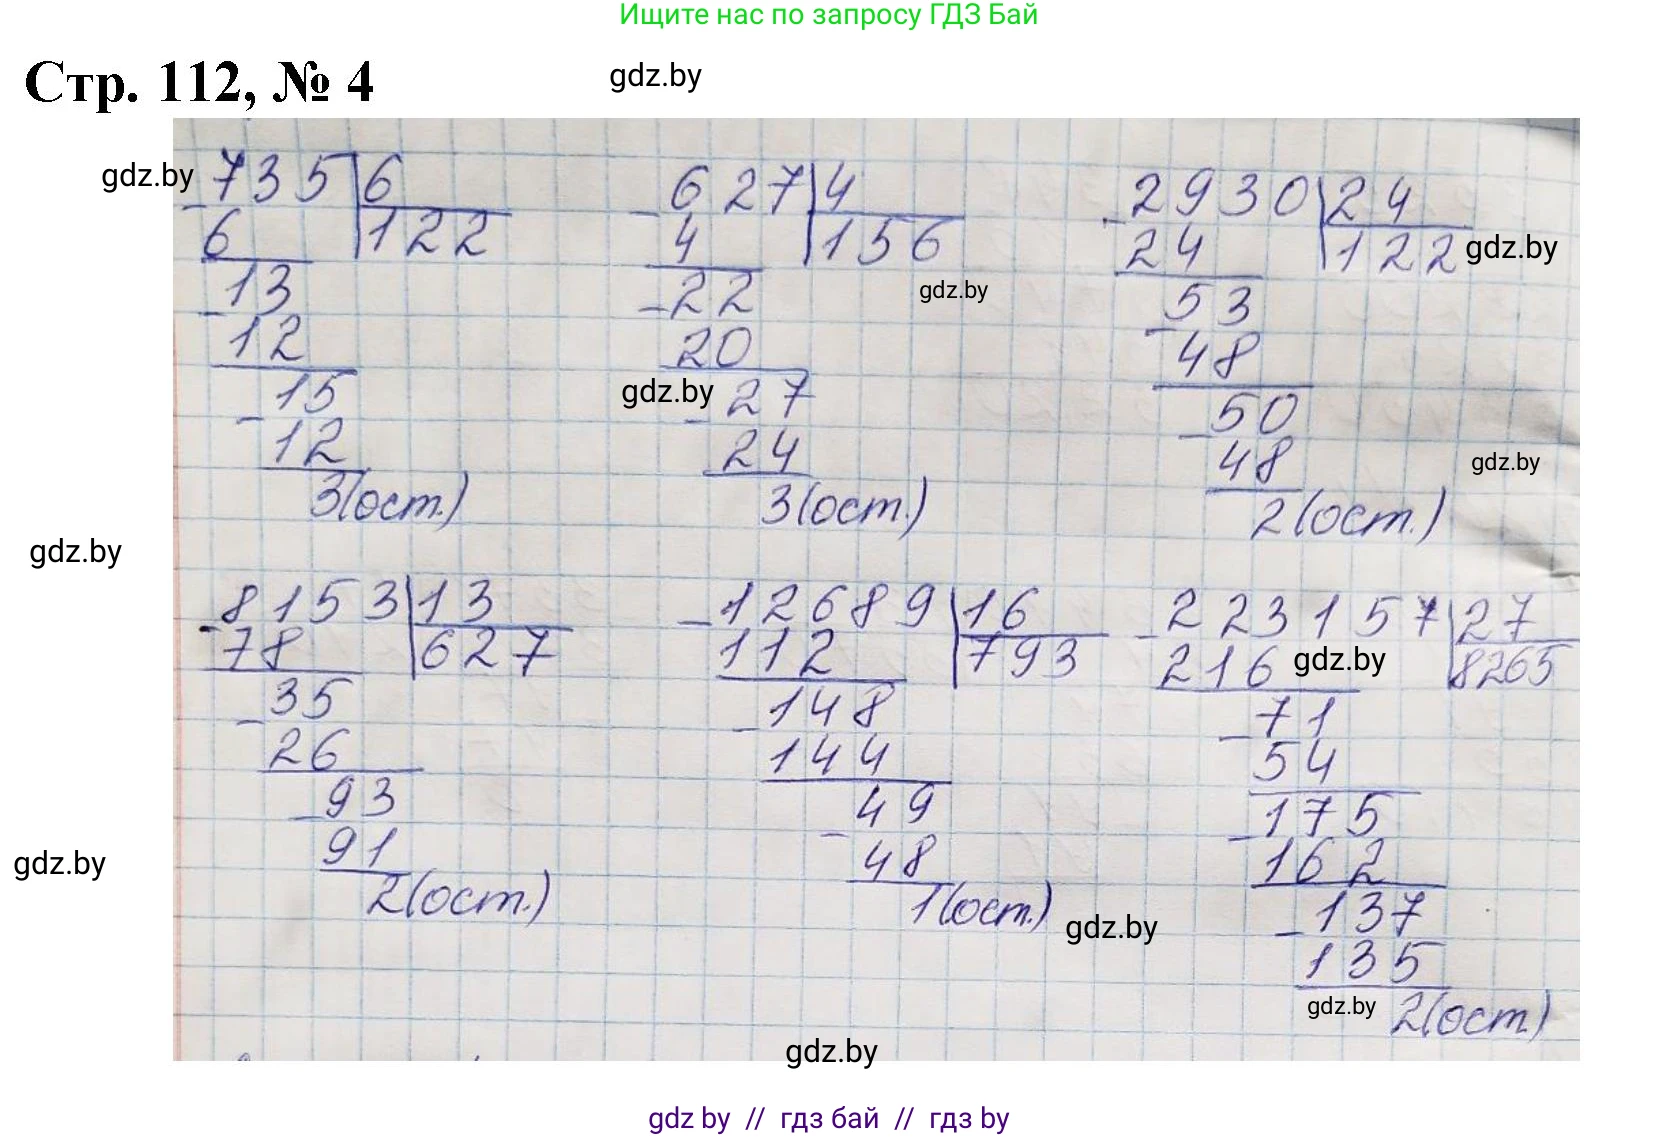 Ищите нас по запросу ГДЗ Бай
Стр. 112, № 4
gdz.by
gdz.by
735 6
6 122
13
12
15
12
3(ост.)
627 4
4 156
gdz.by
22
20
gdz.by
27
24
3(ост.)
2930 24
24 122
gdz.by
53
48
50
48
gdz.by
2(ост.)
gdz.by
8153 13
78 627
35
26
93
91
2(ост.)
gdz.by
12689 16
112 793
148
144
49
48
1(ост.)
gdz.by
223157 27
216 8265
gdz.by
71
54
175
162
137
135
gdz.by
2(ост)
gdz.by
gdz by // гдз бай // гдз by